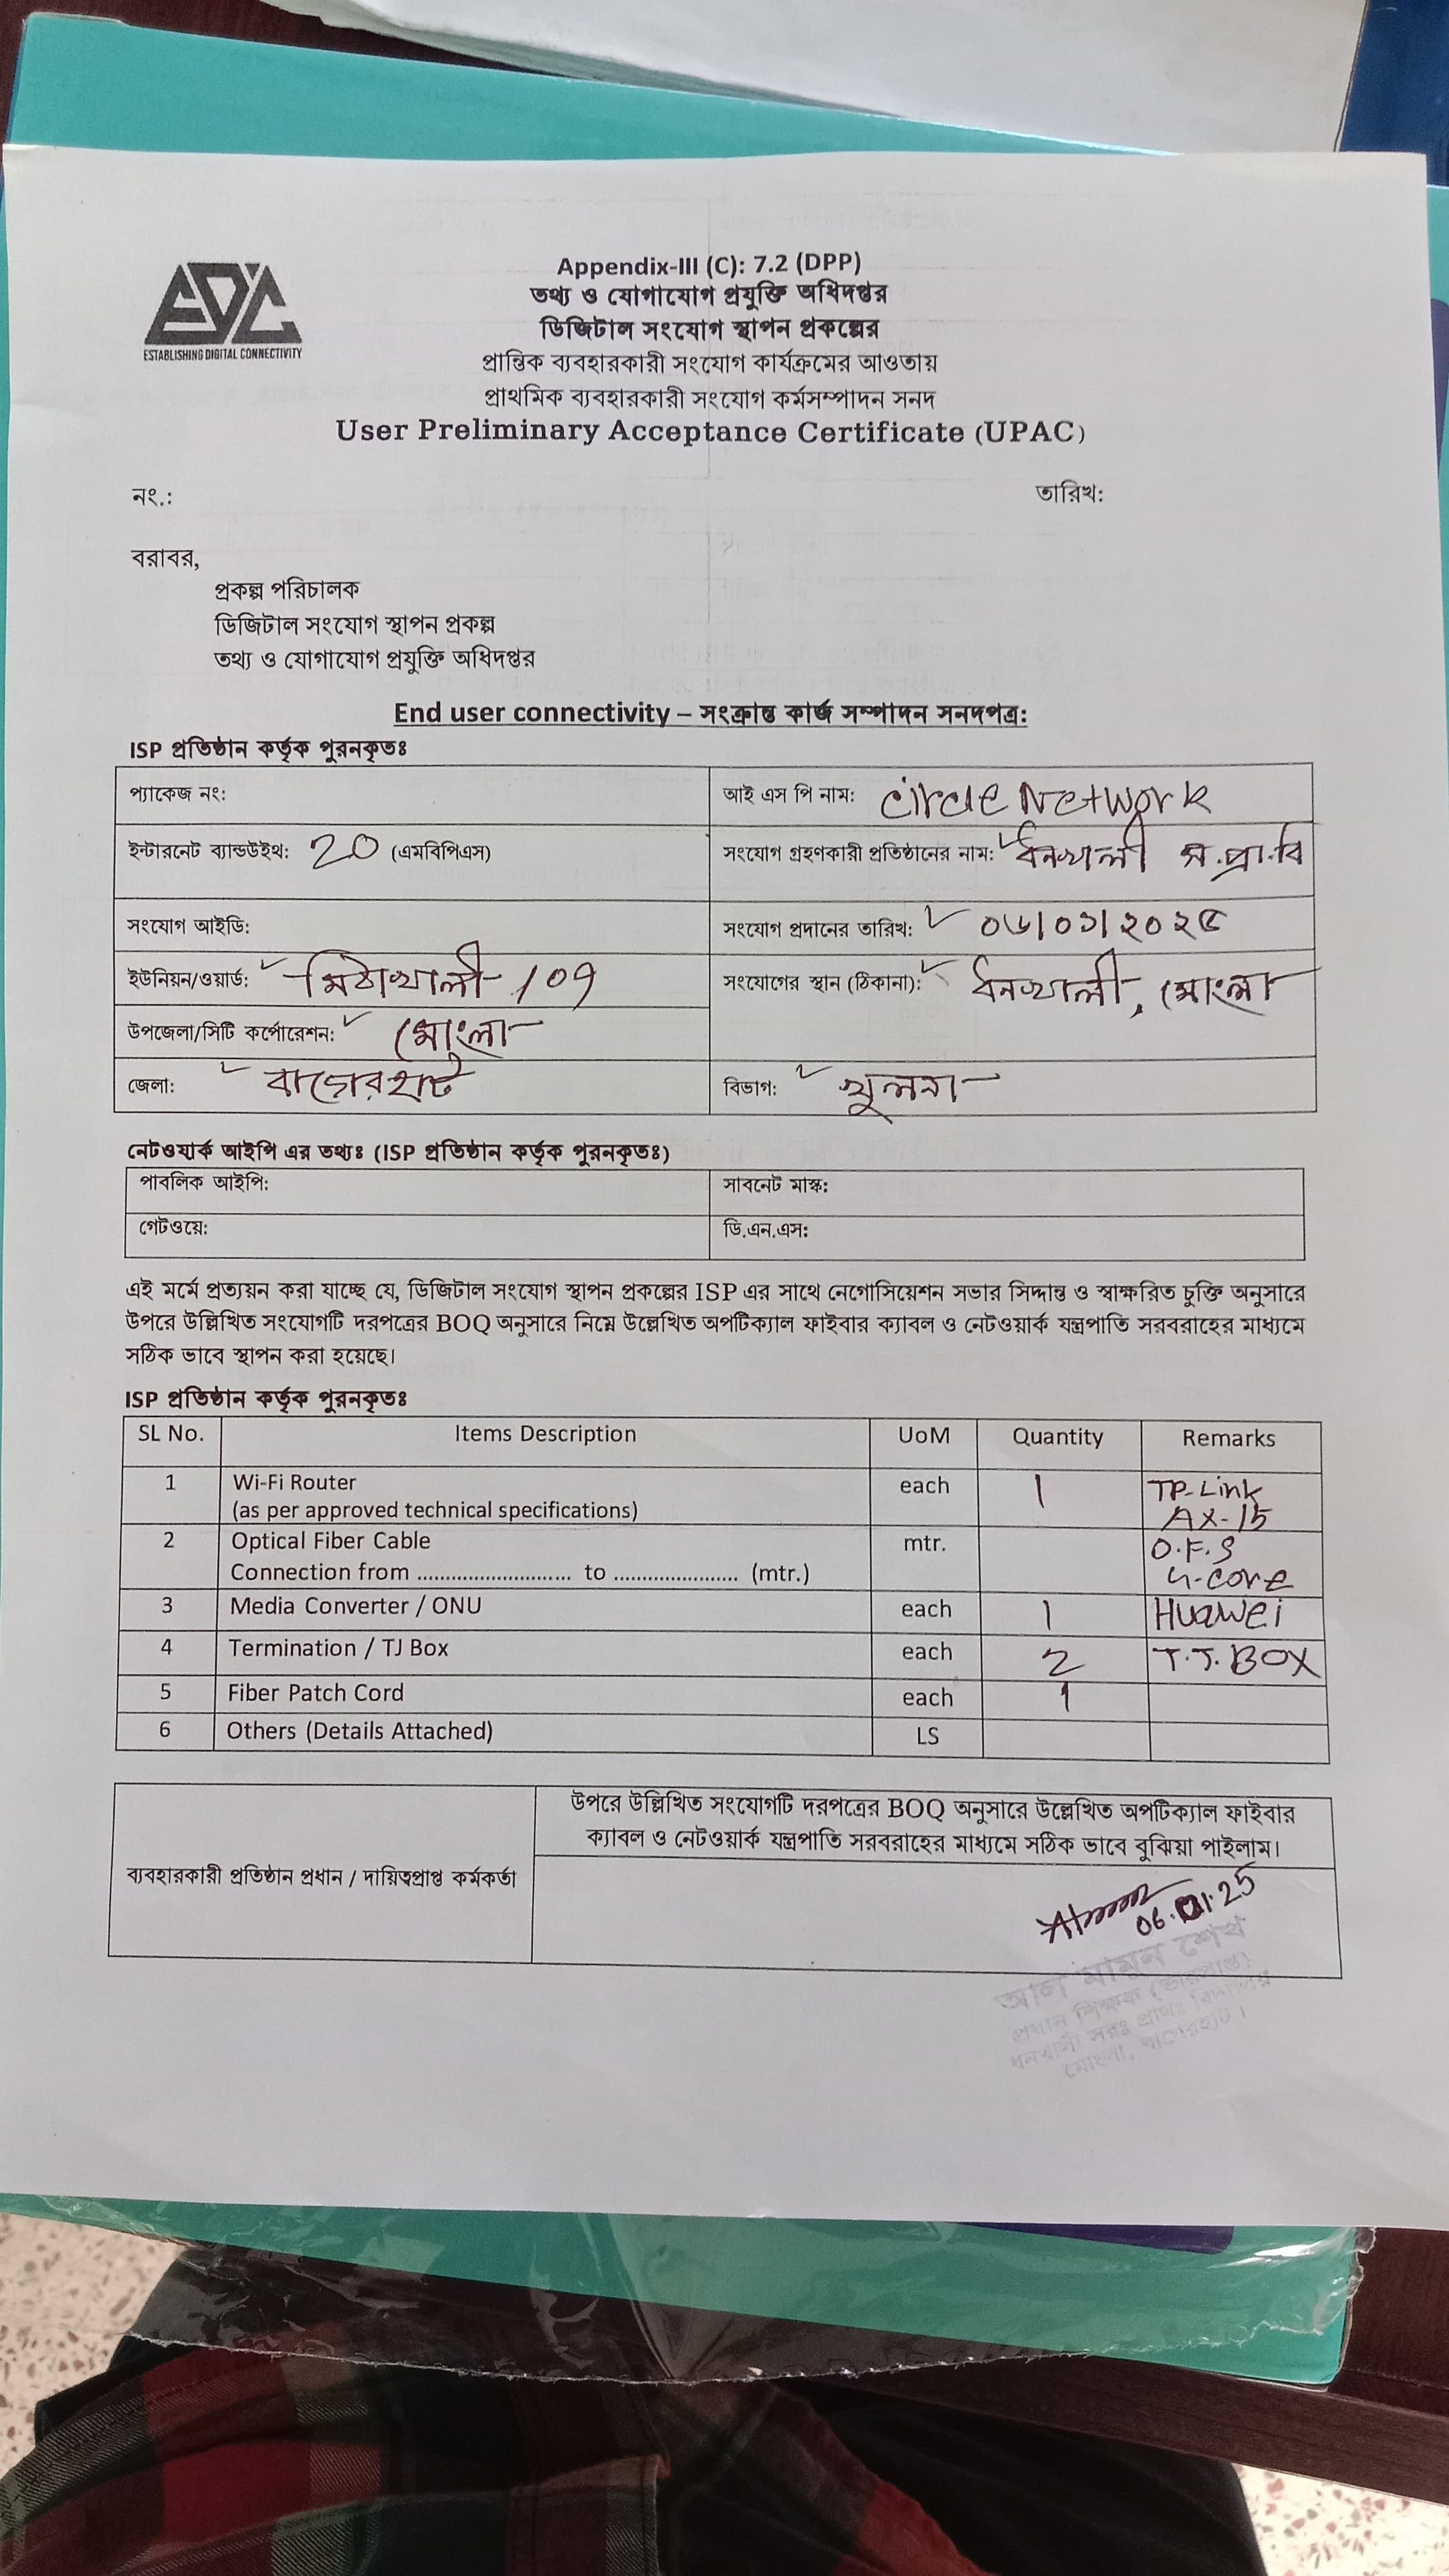 EDC
ESTABLISHING DIGITAL CONNECTIVITY
Appendix-III (C): 7.2 (DPP)
তথ্য ও যোগাযোগ প্রযুক্তি অধিদপ্তর
ডিজিটাল সংযোগ স্থাপন প্রকল্পের
প্রান্তিক ব্যবহারকারী সংযোগ কার্যক্রমের আওতায়
প্রাথমিক ব্যবহারকারী সংযোগ কর্মসম্পাদন সনদ
User Preliminary Acceptance Certificate (UPAC)
নং.: তারিখ:
বরাবর,
প্রকল্প পরিচালক
ডিজিটাল সংযোগ স্থাপন প্রকল্প
তথ্য ও যোগাযোগ প্রযুক্তি অধিদপ্তর
End user connectivity – সংক্রান্ত কার্জ সম্পাদন সনদপত্র:
ISP প্রতিষ্ঠান কর্তৃক পুরনকৃতঃ
প্যাকেজ নং: আই এস পি নাম: Circle Network
ইন্টারনেট ব্যান্ডউইথ: 20 (এমবিপিএস) সংযোগ গ্রহণকারী প্রতিষ্ঠানের নাম: ধনখালী স.প্রা.বি
সংযোগ আইডি: সংযোগ প্রদানের তারিখ: ০৬/০১/২০২৫
ইউনিয়ন/ওয়ার্ড: মিঠাখালী /০৭ সংযোগের স্থান (ঠিকানা): ধনখালী, মোংলা
উপজেলা/সিটি কর্পোরেশন: মোংলা
জেলা: বাগেরহাট বিভাগ: খুলনা
নেটওয়ার্ক আইপি এর তথ্যঃ (ISP প্রতিষ্ঠান কর্তৃক পুরনকৃতঃ)
পাবলিক আইপি: সাবনেট মাস্ক:
গেটওয়ে: ডি.এন.এস:
এই মর্মে প্রত্যয়ন করা যাচ্ছে যে, ডিজিটাল সংযোগ স্থাপন প্রকল্পের ISP এর সাথে নেগোসিয়েশন সভার সিদ্দান্ত ও স্বাক্ষরিত চুক্তি অনুসারে
উপরে উল্লিখিত সংযোগটি দরপত্রের BOQ অনুসারে নিম্নে উল্লেখিত অপটিক্যাল ফাইবার ক্যাবল ও নেটওয়ার্ক যন্ত্রপাতি সরবরাহের মাধ্যমে
সঠিক ভাবে স্থাপন করা হয়েছে।
ISP প্রতিষ্ঠান কর্তৃক পুরনকৃতঃ
SL No. Items Description UoM Quantity Remarks
1 Wi-Fi Router each 1 TP-Link
(as per approved technical specifications) AX-15
2 Optical Fiber Cable mtr. O.F.S
Connection from ........................... to ...................... (mtr.) 4-core
3 Media Converter / ONU each 1 Huawei
4 Termination / TJ Box each 2 T.J. BOX
5 Fiber Patch Cord each 1
6 Others (Details Attached) LS
উপরে উল্লিখিত সংযোগটি দরপত্রের BOQ অনুসারে উল্লেখিত অপটিক্যাল ফাইবার
ক্যাবল ও নেটওয়ার্ক যন্ত্রপাতি সরবরাহের মাধ্যমে সঠিক ভাবে বুঝিয়া পাইলাম।
ব্যবহারকারী প্রতিষ্ঠান প্রধান / দায়িত্বপ্রাপ্ত কর্মকর্তা
06.01.25
আল মামুন শেখ
প্রধান শিক্ষক (ভারপ্রাপ্ত)
ধনখালী সরঃ প্রাথঃ বিদ্যালয়
মোংলা, বাগেরহাট।